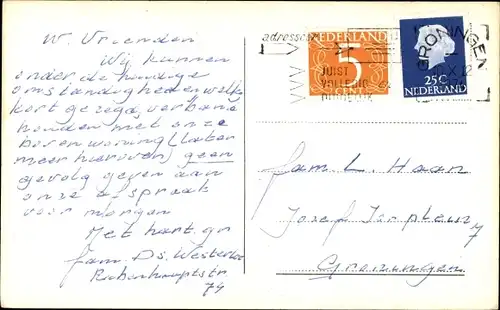 W. Vrienden
Wij kunnen
onder de huidige
omstandigheden welke
kort gezegd, verband
houden met onze
bovenwoning (later
meer hierover) geen
gevolg geven aan
onze afspraak
voor morgen
Met hart. gr
fam. Ds. Westerloo
74
adressen
JUIST
VOLLEDIG
DUIDELIJK
GRONINGEN
X 12
NEDERLAND
5
CENT
25c
NEDERLAND
fam L. Haan
Jozef Israelsplein 7
Groningen